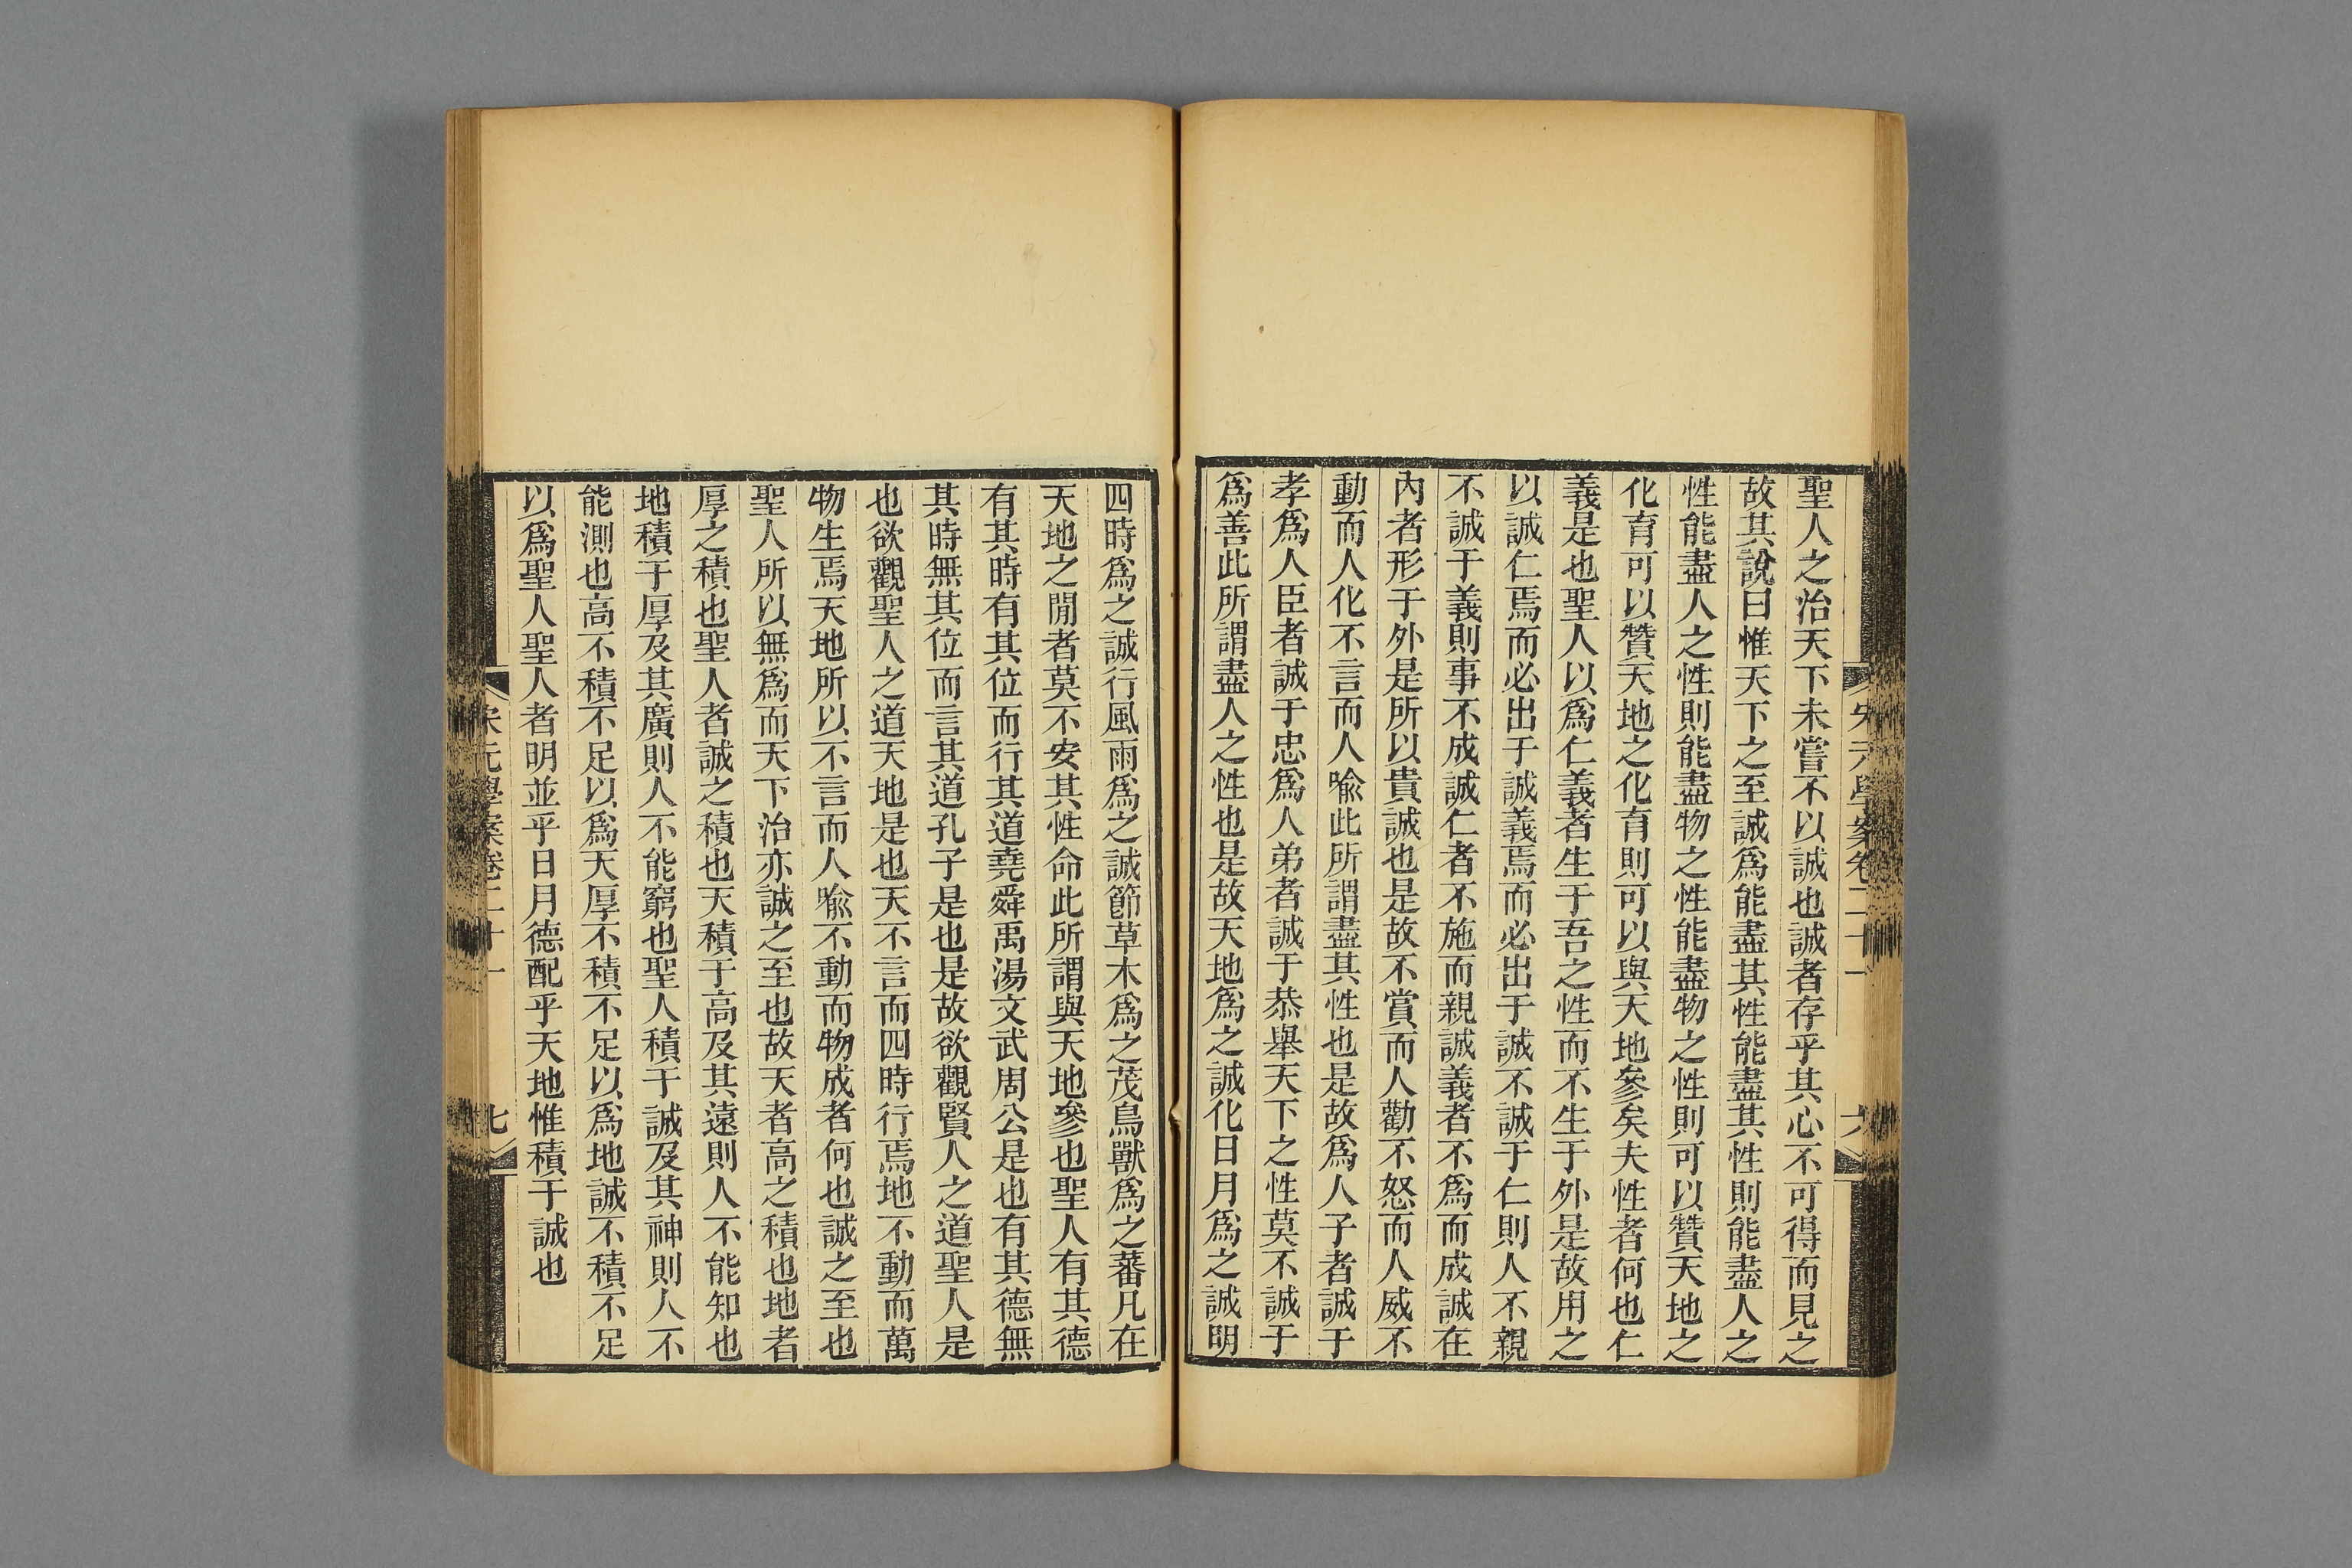 聖人之治天下未嘗不以誠也誠者存乎其心不可得而見之
故其說曰惟天下之至誠爲能盡其性能盡其性則能盡人之
性能盡人之性則能盡物之性能盡物之性則可以贊天地之
化育可以贊天地之化育則可以與天地參矣夫性者何也仁
義是也聖人以爲仁義者生于吾之性而不生于外是故用之
以誠仁焉而必出于誠義焉而必出于誠不誠于仁則人不親
不誠于義則事不成誠仁者不施而親誠義者不爲而成誠在
內者形于外是所以貴誠也是故不賞而人勸不怒而人威不
動而人化不言而人喻此所謂盡其性也是故爲人子者誠于
孝爲人臣者誠于忠爲人弟者誠于恭舉天下之性莫不誠于
爲善此所謂盡人之性也是故天地爲之誠化日月爲之誠明
四時爲之誠行風雨爲之誠節草木爲之茂鳥獸爲之蕃凡在
天地之閒者莫不安其性命此所謂與天地參也聖人有其德
有其時有其位而行其道堯舜禹湯文武周公是也有其德無
其時無其位而言其道孔子是也是故欲觀賢人之道聖人是
也欲觀聖人之道天地是也天不言而四時行焉地不動而萬
物生焉天地所以不言而人喻不動而物成者何也誠之至也
聖人所以無爲而天下治亦誠之至也故天者高之積也地者
厚之積也聖人者誠之積也天積于高及其遠則人不能知也
地積于厚及其廣則人不能窮也聖人積于誠及其神則人不
能測也高不積不足以爲天厚不積不足以爲地誠不積不足
以爲聖人聖人者明並乎日月德配乎天地惟積于誠也
宋元學案卷二十一
七